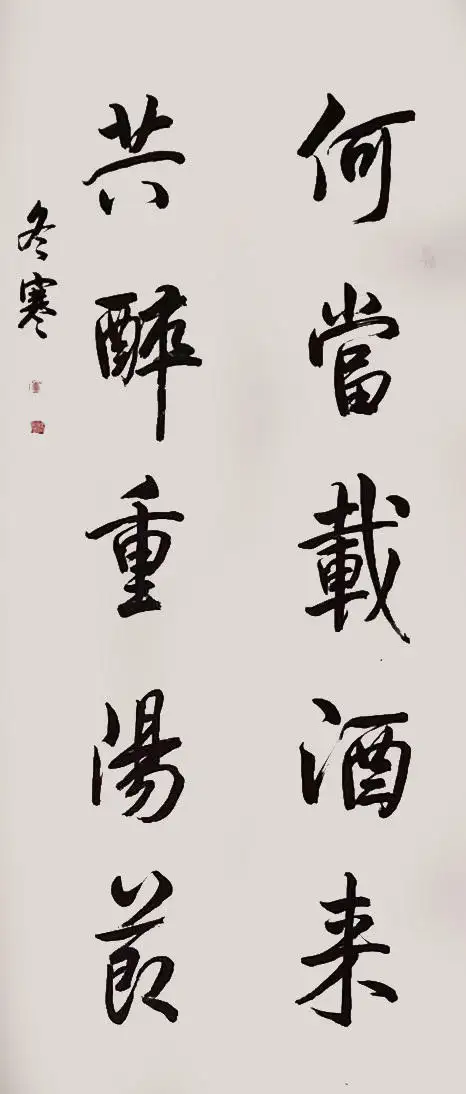 何當載酒来
共醉重陽節
冬寒